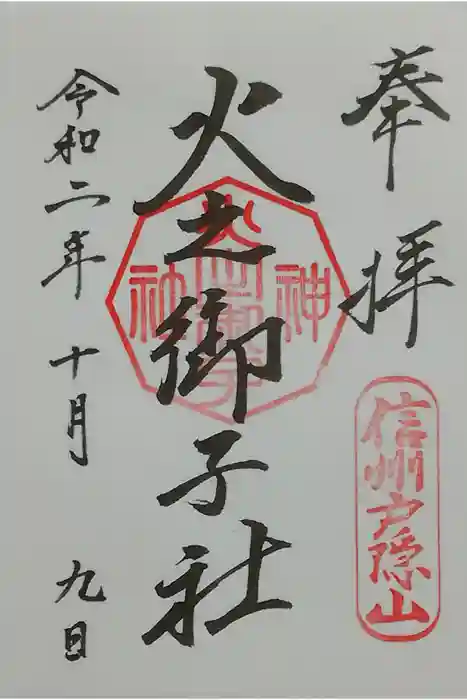 奉拝
信州戸隠山
火之御子社
神社
令和二年十月九日